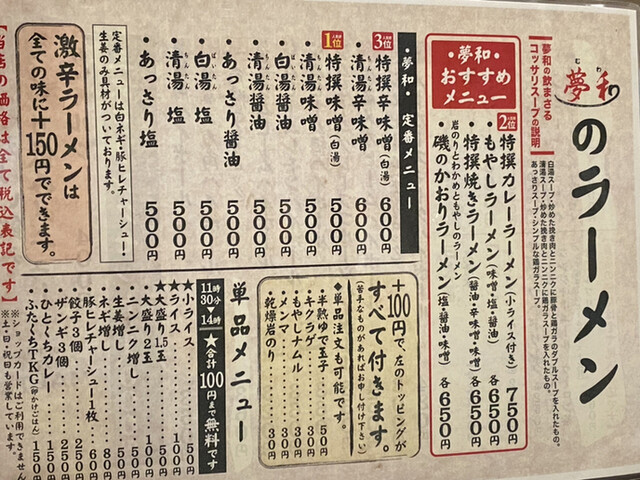 夢和のラーメン
むわ
夢和の飲まさる
コッサリスープの説明
白湯スープ・炒めた挽き肉とニンニクに豚骨と鶏ガラのダブルスープを入れたもの。
清湯スープ・炒めた挽き肉とニンニクに鶏ガラスープを入れたもの。
あっさりスープ・シンプルな鶏ガラスープ。
・夢和・
おすすめ
メニュー
2位
・特撰カレーラーメン(小ライス付き)750円
・もやしラーメン(味噌・塩・醤油)各650円
・特撰焼きラーメン(醤油・辛味噌・味噌)各650円
岩のりとわかめともやしのラーメン
・磯のかおりラーメン(塩・醤油・味噌)各650円
・夢和・定番メニュー
3位
・特撰辛味噌(白湯)600円
・清湯辛味噌 600円
1位
・特撰味噌(白湯)500円
・清湯味噌 500円
・白湯醤油 500円
・清湯醤油 500円
・あっさり醤油 500円
・白湯 塩 500円
・清湯 塩 500円
・あっさり塩 500円
定番メニューは白ネギ・豚ヒレチャーシュー・
生姜のみ具材がついております。
激辛ラーメンは
全ての味に+150円でできます。
【当店の価格は全て税込表記です】
+100円で、左のトッピングが
すべて付きます。
(苦手なものがあればお申し付け下さい)
◆単品注文も可能です。
・半熟ゆで玉子 50円
・キクラゲ 30円
・もやしナムル 30円
・メンマ 30円
・乾燥岩のり 30円
単品メニュー
11時30分▼14時 ★合計100円まで無料です
★小ライス 50円
★ライス 100円
★大盛り1.5玉 50円
・大盛り2玉 100円
・ニンニク増し 50円
・生姜増し 50円
・ネギ増し 80円
・豚ヒレチャーシュー1枚 60円
・餃子3個 250円
・ザンギ3個 250円
・ひとくちカレー 150円
・ふたくちTKG(卵かけごはん) 150円
※ショップカードはご利用できません
※土・日・祝日も営業しています。